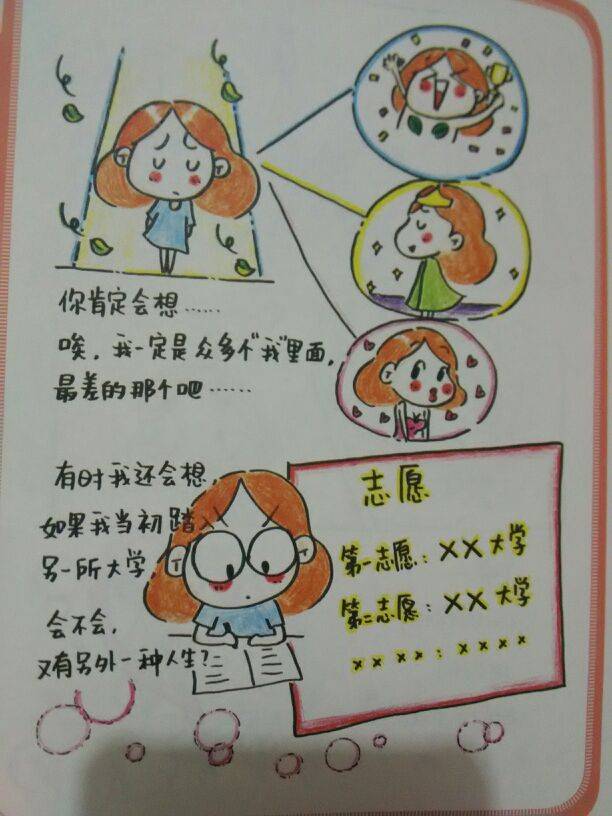 你肯定会想……
唉,我一定是众多个“我”里面,
最差的那个吧……
有时我还会想,
如果我当初踏入
另一所大学
会不会,
又有另外一种人生?
志愿
第一志愿:××大学
第二志愿:××大学
××××:××××